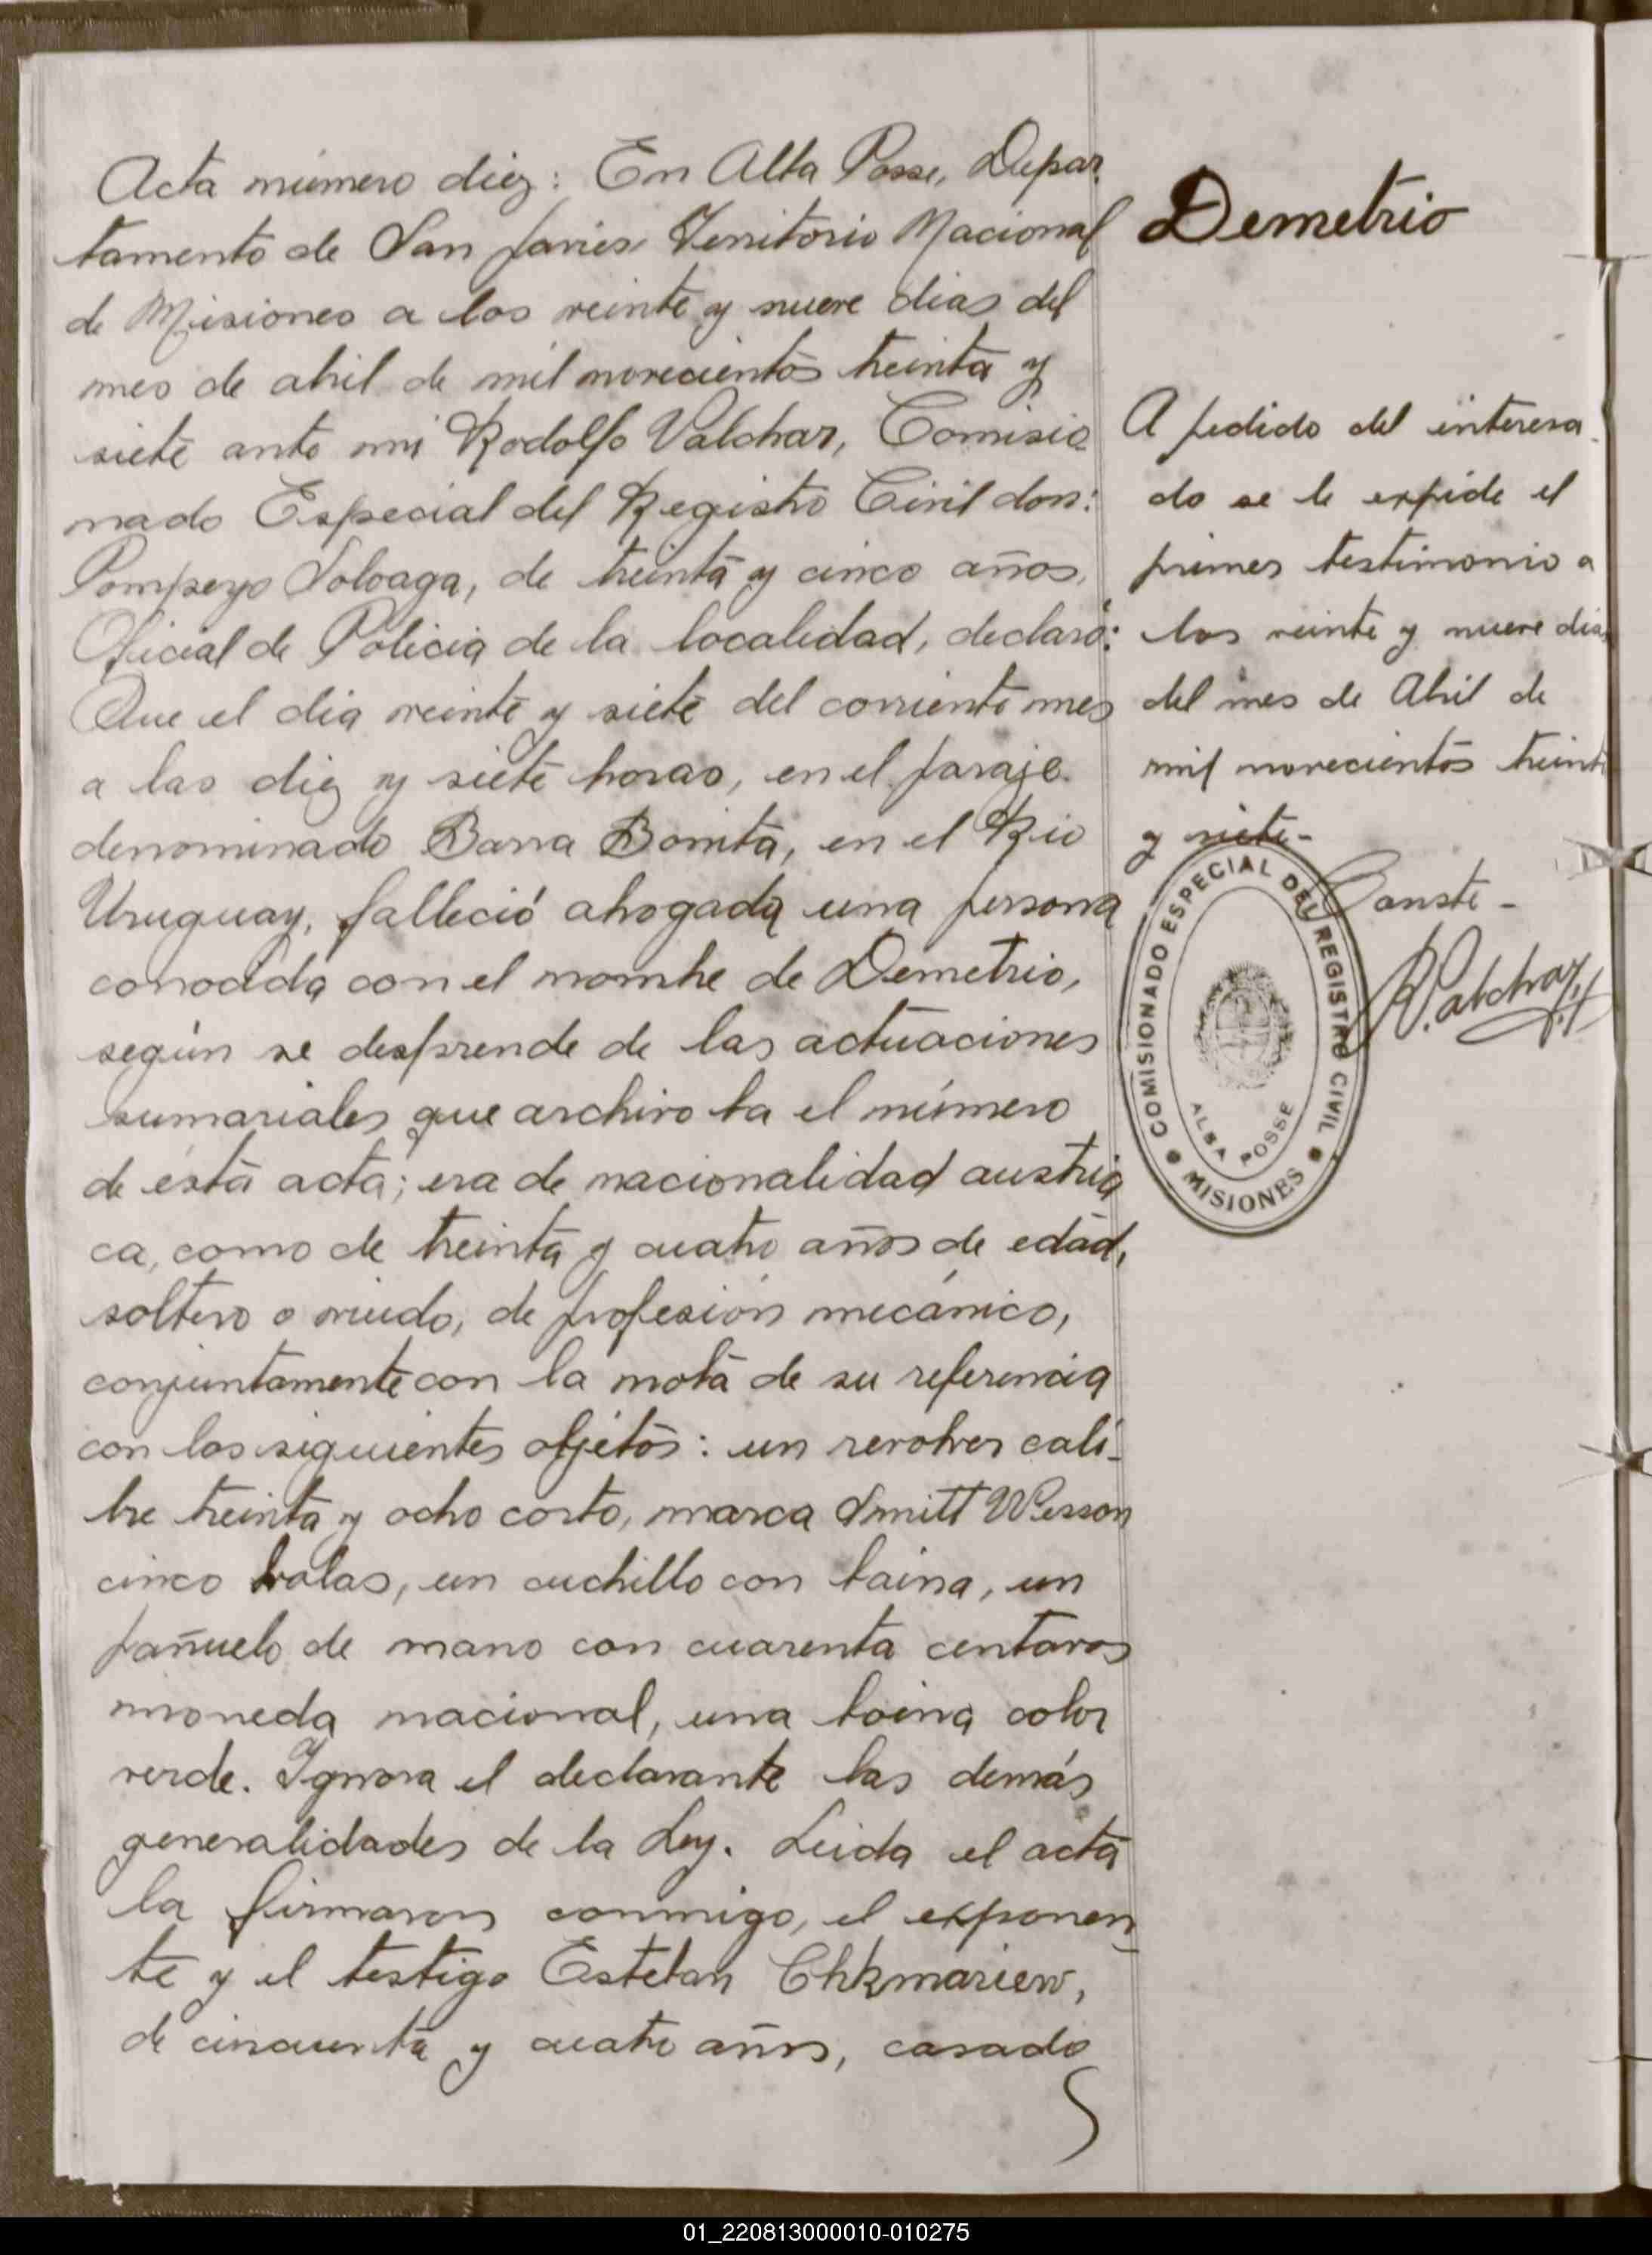 Acta número diez: En Alba Posse, Depar
tamento de San Javier Territorio Nacional
de Misiones a los veinte y nueve dias del
mes de abril de mil novecientos treinta y
siete ante mi Rodolfo Valchar, Comisio
nado Especial del Registro Civil don:
Pompeyo Soloaga, de treinta y cinco años,
Oficial de Policia de la localidad, declaró:
Que el dia veinte y siete del corriente mes
a las diez y siete horas, en el paraje
denominado Barra Bonita, en el Rio
Uruguay, falleció ahogada una persona
conocida con el nombre de Demetrio,
según se desprende de las actuaciones
sumariales que archivo ba el número
de ésta acta; era de nacionalidad austria
ca, como de treinta y cuatro años de edad,
soltero o viudo, de profesión mecánico,
conjuntamente con la nota de su referencia
con los siguientes objetos: un revolver cali-
bre treinta y ocho corto, marca Smitt Wesson
cinco balas, un cuchillo con baina, un
pañuelo de mano con cuarenta centavos
moneda nacional, una boina color
verde. Ignora el declarante las demás
generalidades de la Ley. Leida el acta
la firmaron conmigo, el exponen-
te y el testigo Esteban
de cincuenta y cuatro años, casado
Demetrio
A pedido del interesa-
do se le expide el
primer testimonio a
los veinte y nueve dias
del mes de Abril de
mil novecientos treinta
y siete-
Conste-
R. Valchar
COMISIONADO ESPECIAL DEL REGISTRO CIVIL
ALBA POSSE
MISIONES
01_220813000010-010275